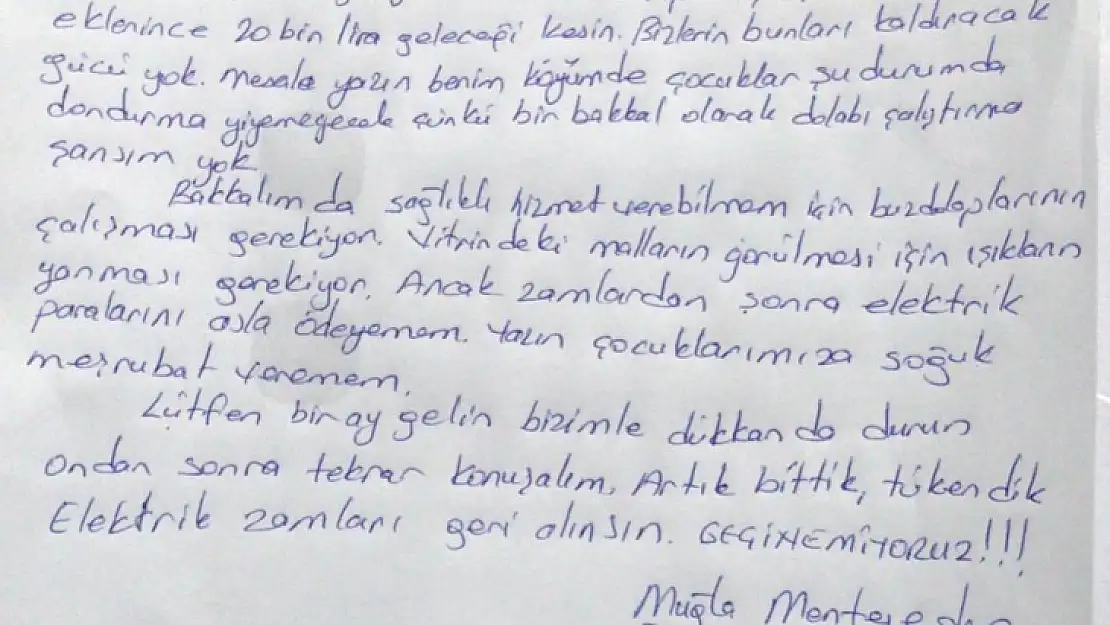 eklenince 20 bin lira geleceği kesin. Bizlerin bunları kaldıracak
gücü yok. Mesela yazın benim köyümde çocuklar şu durumda
dondurma yiyemeyecek çünkü bir bakkal olarak dolabı çalıştırma
şansım yok
Bakkalım da sağlıklı hizmet verebilmem için buzdolaplarının
çalışması gerekiyor. Vitrindeki malların görülmesi için ışıkların
yanması gerekiyor. Ancak zamlardan sonra elektrik
paralarını asla ödeyemem. Yazın çocuklarımıza soğuk
meşrubat veremem.
Lütfen bir ay gelin bizimle dükkan da durun
ondan sonra tekrar konuşalım. Artık bittik, tükendik
Elektrik zamları geri alınsın. GEÇİNEMİYORUZ!!!
Muğla